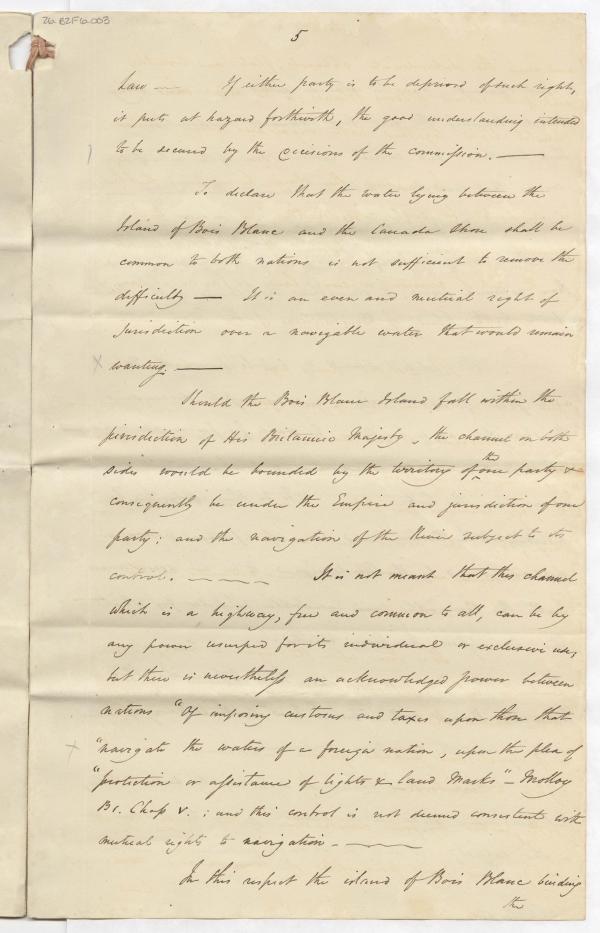 26 B2F6 003
5
Law — If either party is to be deprived of such rights,
it puts at hazard forthwith, the good understanding intended
to be secured by the decisions of the commission. —
To declare that the water lying between the
Island of Bois Blanc and the Canada Shore shall be
common to both nations is not sufficient to remove the
difficulty — It is an even and mutual right of
Jurisdiction over a navigable water that would remain
wanting. —
Should the Bois Blanc Island fall within the
jurisdiction of His Britannic Majesty, the channel on both
sides would be bounded by the territory of the one party &
consequently be under the Empire and jurisdiction of one
party; and the navigation of the River subject to its
control. — — — — It is not meant that this channel
which is a highway, free and common to all, can be by
any power usurped for its individual or exclusive use,
but there is nevertheless an acknowledged power between
nations "Of imposing customs and taxes upon those that
"navigate the waters of a foreign nation, upon the plea of
"protection or assistance of lights & land Marks" – Molloy
B1. Chap V. ; and this control is not deemed consistent with
mutual rights to navigation – —
In this respect the island of Bois Blanc binding
the